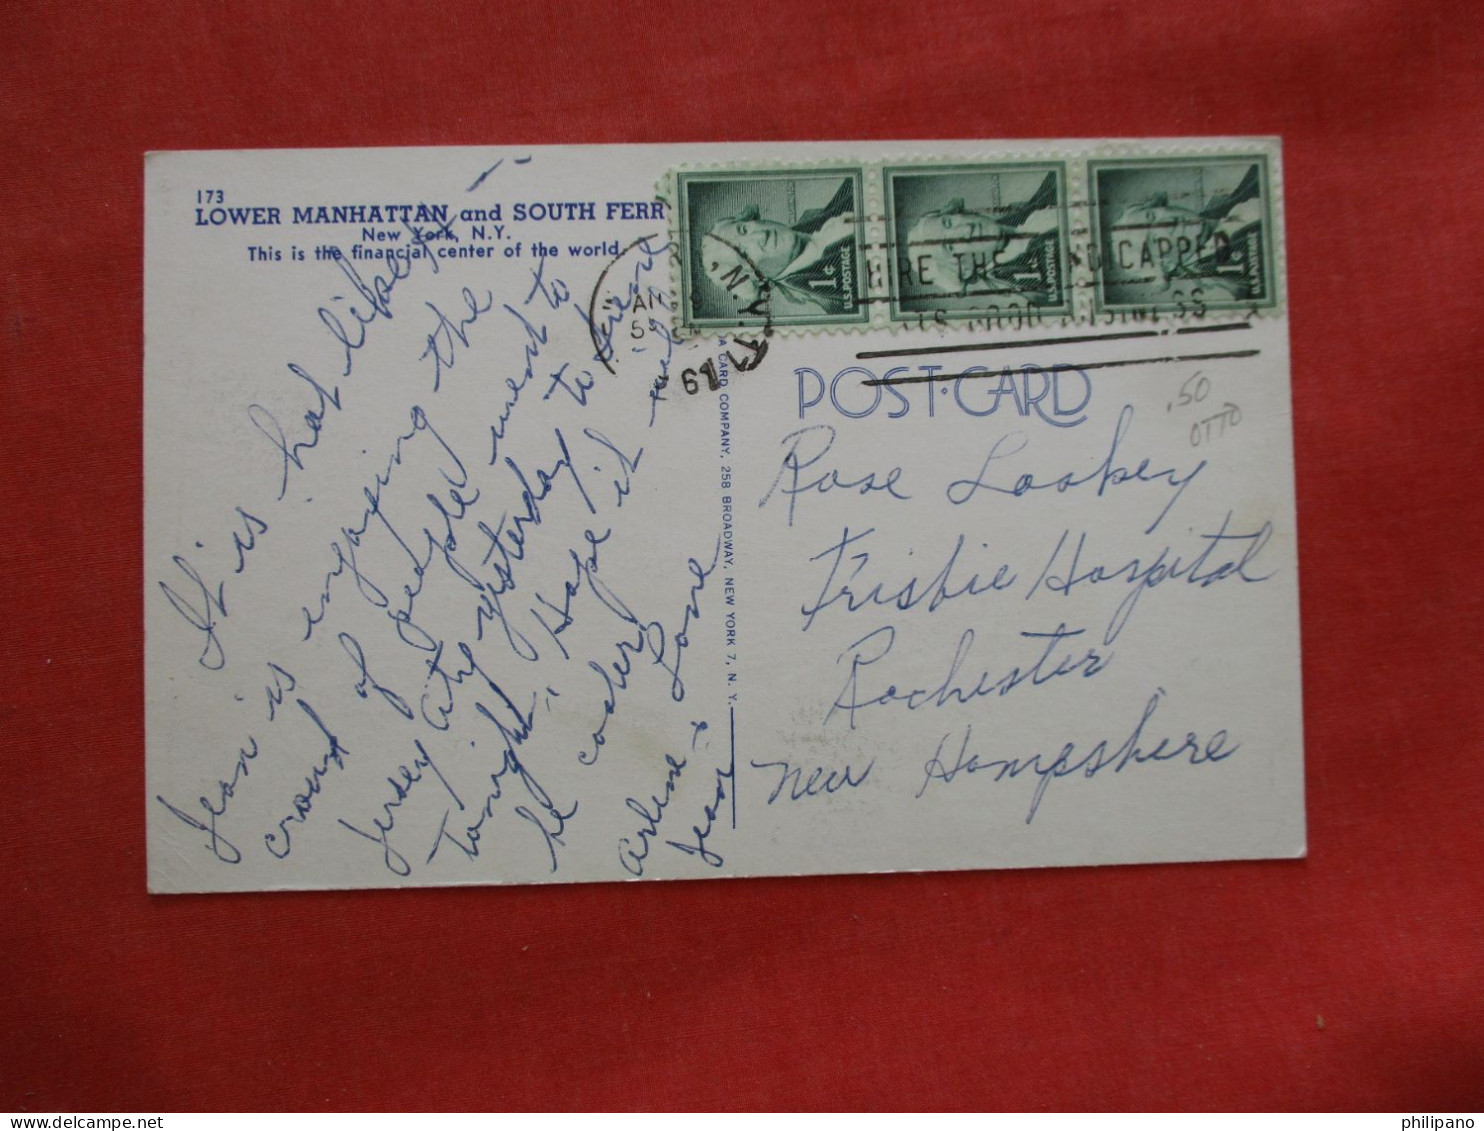 173
LOWER MANHATTAN and SOUTH FERR
New York, N.Y.
This is the financial center of the world.
It is hot
Jean is enjoying the
crowd of people went to
Jersey City yesterday to
tonight. Hope it will
be cooler
Love
Arlene &
Jean
A CARD COMPANY, 258 BROADWAY, NEW YORK 7, N. Y.
1¢ U.S. POSTAGE
1¢ U.S. POSTAGE
1¢ U.S. POSTAGE
, N.Y.
HIRE THE HANDICAPPED
ITS GOOD BUSINESS
POST-CARD
.50
OTTO
Rose Lookey
Frisbie Hospital
Rochester
New Hampshire
philipano